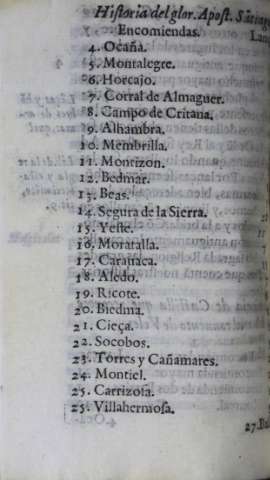 Historia del glor. Apost. Sātiag
Encomiendas.
4. Ocaña.
5. Montalegre.
6. Horcajo.
7. Corral de Almaguer.
8. Campo de Critana.
9. Alhambra.
10. Membrilla.
11. Montizon.
12. Bedmar.
13. Beas.
14. Segura de la Sierra.
15. Yeste.
16. Moratalla.
17. Carauaca.
18. Aledo.
19. Ricote.
20. Biedma.
21. Cieça.
22. Socobos.
23. Torres y Cañamares.
24. Montiel.
25. Carrizosa.
25. Villahermosa.
27. Ba